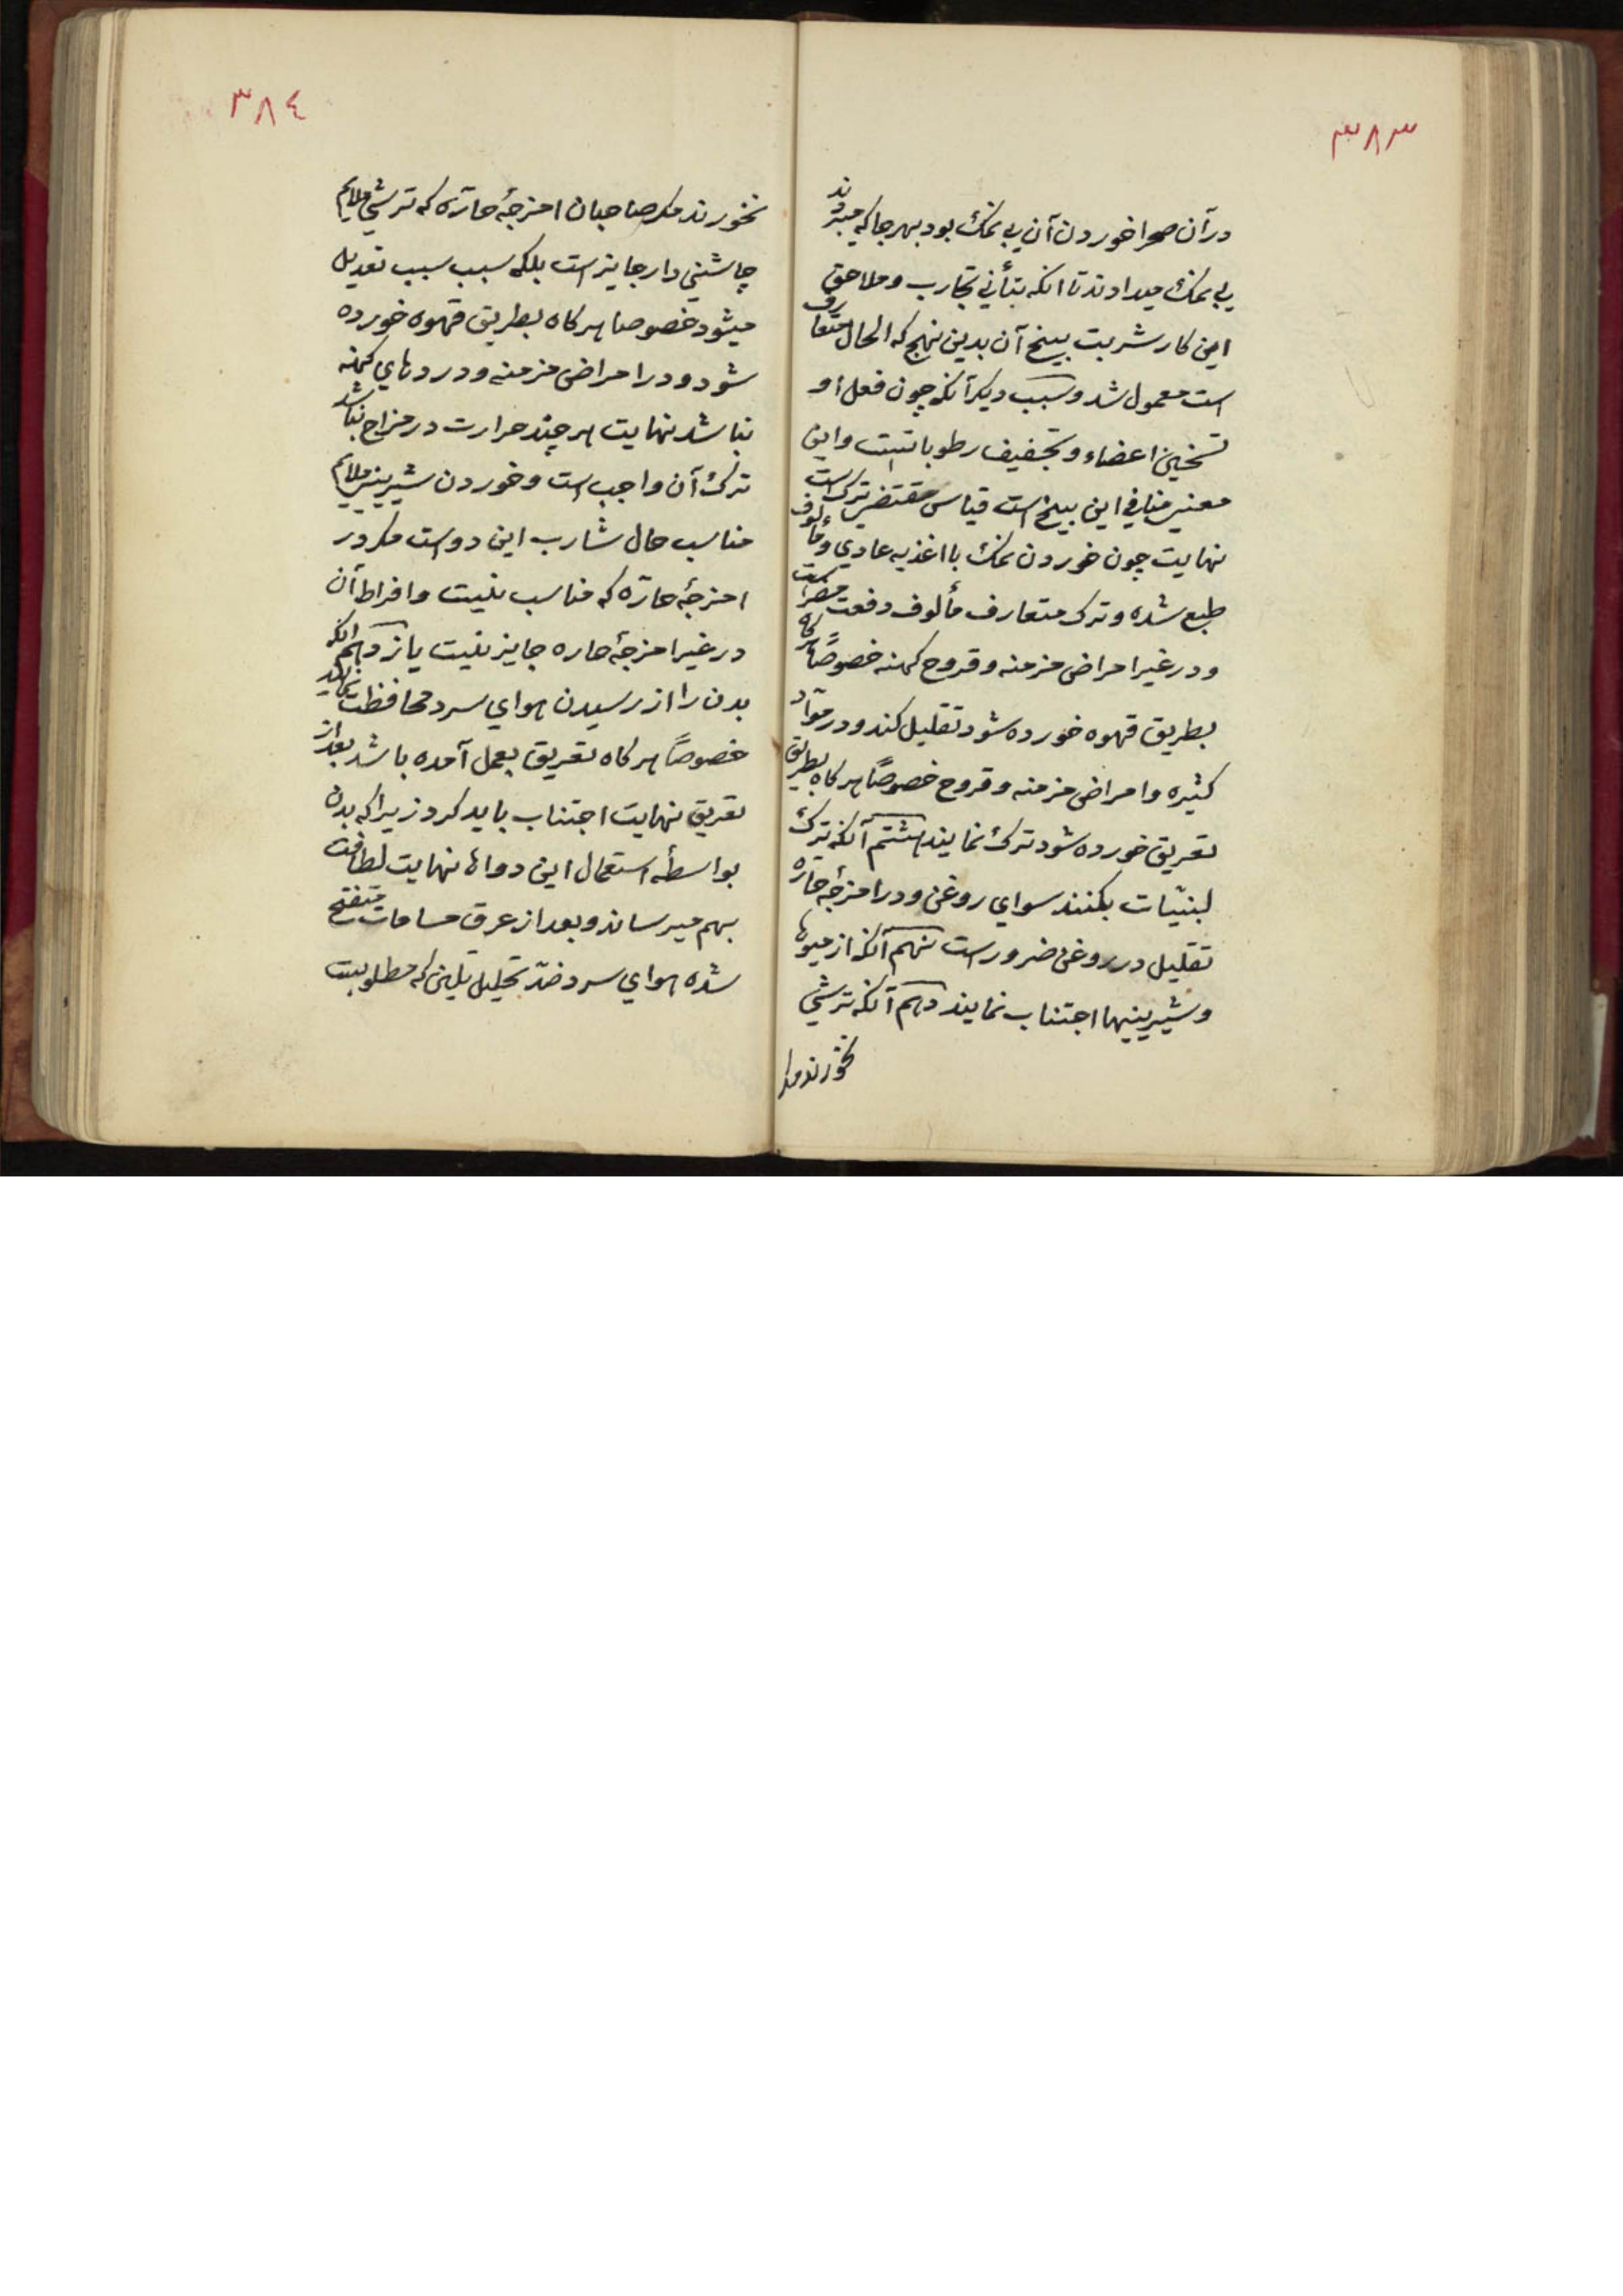 ٣٨٣
در آن صحرا خوردن آن بی نمک بود بهر جا که میبردند
بی نمک میدادند تا آنکه بتأنی تجارب و ملاحق
این کار شربت بیخ آن بدین نهج که الحال متعارف
است معمول شد و سبب دیکر آنکه چون فعل او
تسخین اعضاء و تجفیف رطوباتست و این
معنی منافی این بیخ است قیاس مقتضی ترک است
نهایت چون خوردن نمک با اغذیه عادی و مألوف
طبع شده و ترک متعارف مألوف دفعت مضر است
و در غیر امراض مزمنه و قروح کهنه خصوصاً هر کاه
بطریق قهوه خورده شود تقلیل کند و در مواد
کثیره و امراض مزمنه و قروح خصوصاً هر کاه بطریق
تعریق خورده شود ترک نمایند هشتم آنکه ترک
لبنیّات بکنند سوای روغن و در امزجهٔ حارّه
تقلیل در روغن ضرور است نهم آنکه از میوها
و شیرینیها اجتناب نمایند دهم آنکه ترشی
نخورند مکر
٣٨٤
نخورند مکر صاحبان امزجهٔ حارّه که ترشی ملایم
چاشنی دار جایز است بلکه سبب سبب تعدیل
میشود خصوصا هر کاه بطریق قهوه خورده
شود و در امراض مزمنه و دردهای کهنه
نباشد نهایت هر چند حرارت در مزاج نباشد
ترک آن واجب است و خوردن شیرینی ملایم
مناسب حال شارب این دواست مکر در
امزجهٔ حارّه که مناسب نیست و افراط آن
در غیر امزجهٔ حاره جایز نیست یازدهم آنکه
بدن را از رسیدن هوای سرد محافظت نمایند
خصوصاً هر کاه تعریق بعمل آمده باشد بعد از
تعریق نهایت اجتناب باید کرد زیرا که بدن
بواسطهٔ استعمال این دواها نهایت لطافت
بهم میرساند و بعد از عرق مسامات متفتح
شده هوای سرد ضدّ تحلیل تلین که مطلوبست